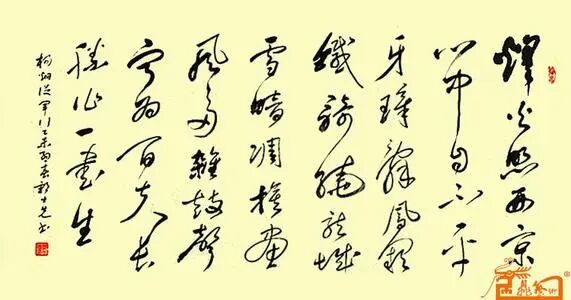 烽火照西京
心中自不平
牙璋辭鳳闕
鐵騎繞龍城
雪暗凋旗畫
風多雜鼓聲
寧為百夫長
勝作一書生
楊炯從軍行乙未